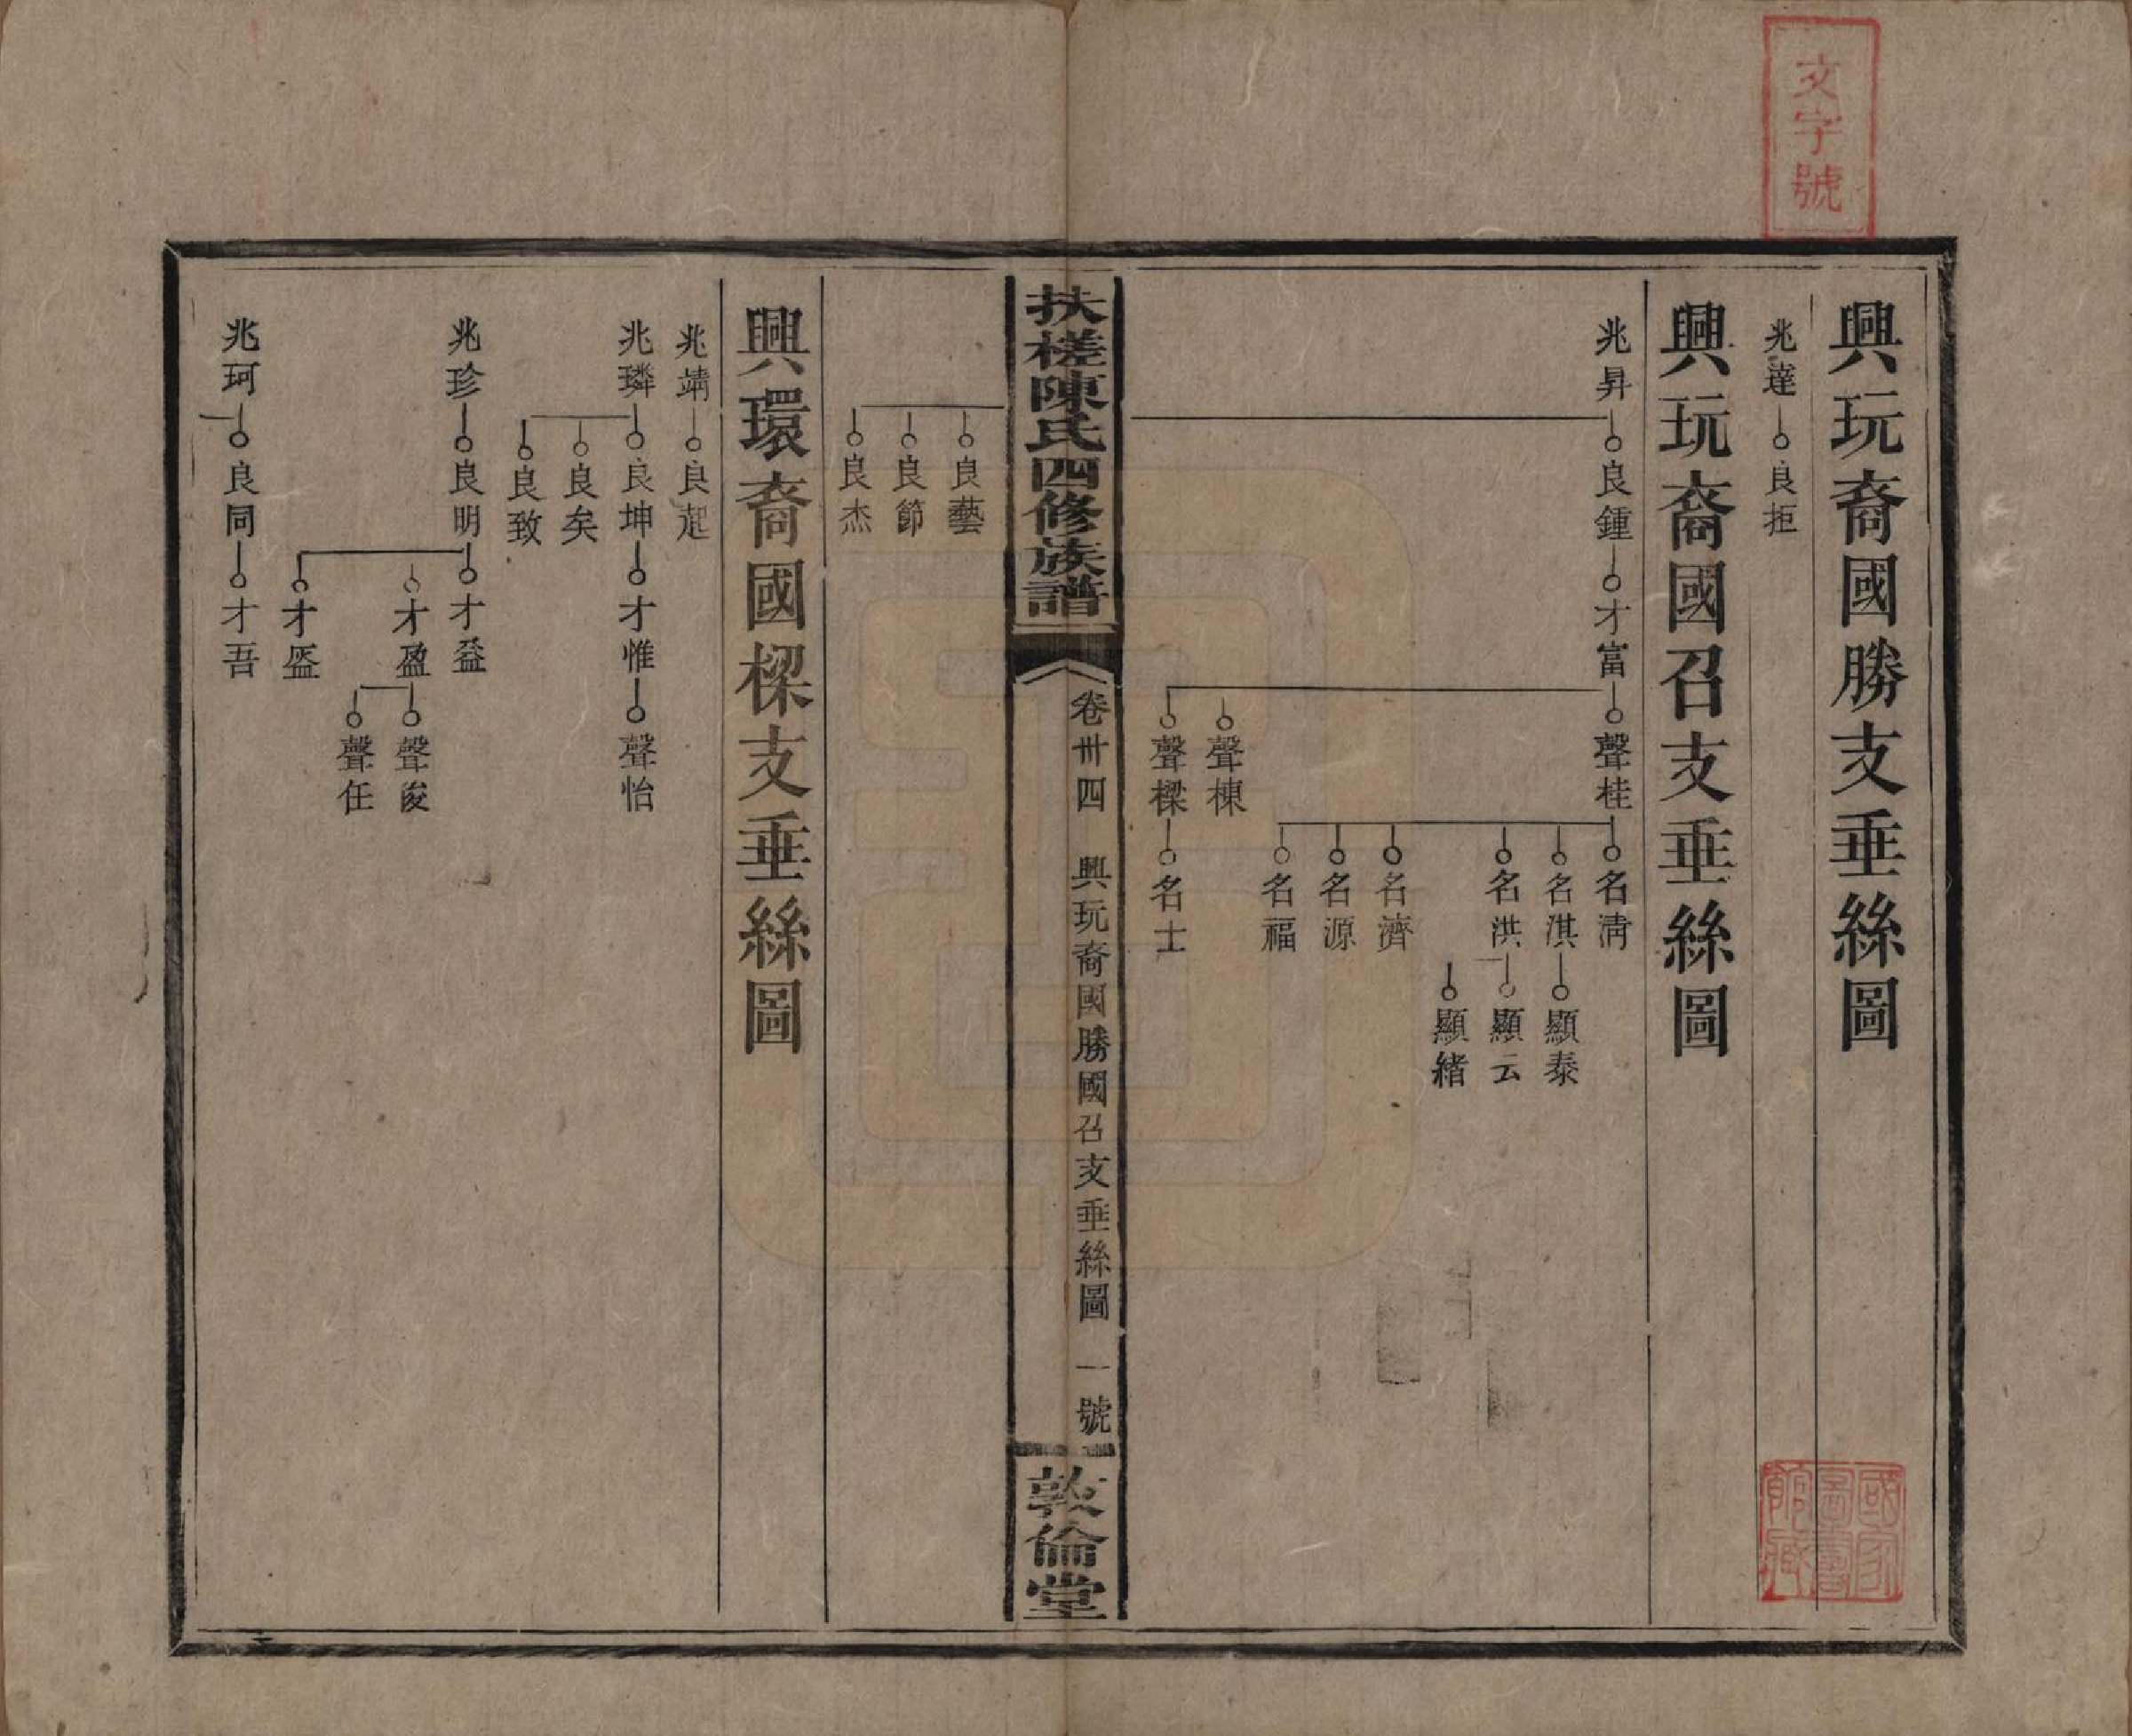 文字號
興玩裔國勝支垂絲圖
兆達 良拒
興玩裔國召支垂絲圖
兆昇 良鍾 才富 聲桂 名清
名淇 顯泰
名洪 顯云
顯緒
名濟
名源
名福
聲棟
聲樑 名士
扶槎陳氏四修族譜
卷卅四 興玩裔國勝國召支垂絲圖 一號
敦倫堂
良藝
良節
良杰
興環裔國樑支垂絲圖
兆靖 良起
兆璘 良坤 才惟 聲怡
良矣
良致
兆珍 良明 才益
才盈 聲俊
聲任
才盛
兆珂 良同 才吾
國家
圖書
館藏